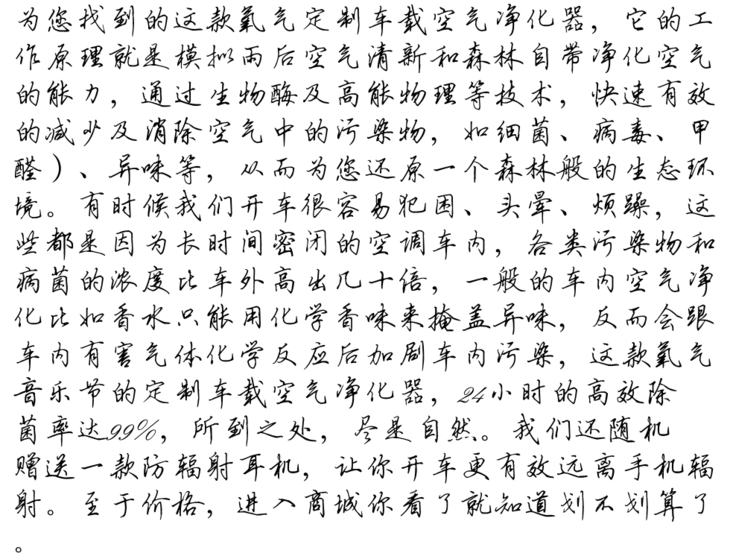 为您找到的这款氧气定制车载空气净化器，它的工
作原理就是模拟雨后空气清新和森林自带净化空气
的能力，通过生物酶及高能物理等技术，快速有效
的减少及消除空气中的污染物，如细菌、病毒、甲
醛）、异味等，从而为您还原一个森林般的生态环
境。有时候我们开车很容易犯困、头晕、烦躁，这
些都是因为长时间密闭的空调车内，各类污染物和
病菌的浓度比车外高出几十倍，一般的车内空气净
化比如香水只能用化学香味来掩盖异味，反而会跟
车内有害气体化学反应后加剧车内污染，这款氧气
音乐节的定制车载空气净化器，24小时的高效除
菌率达99%，所到之处，尽是自然。我们还随机
赠送一款防辐射耳机，让你开车更有效远离手机辐
射。至于价格，进入商城你看了就知道划不划算了
。